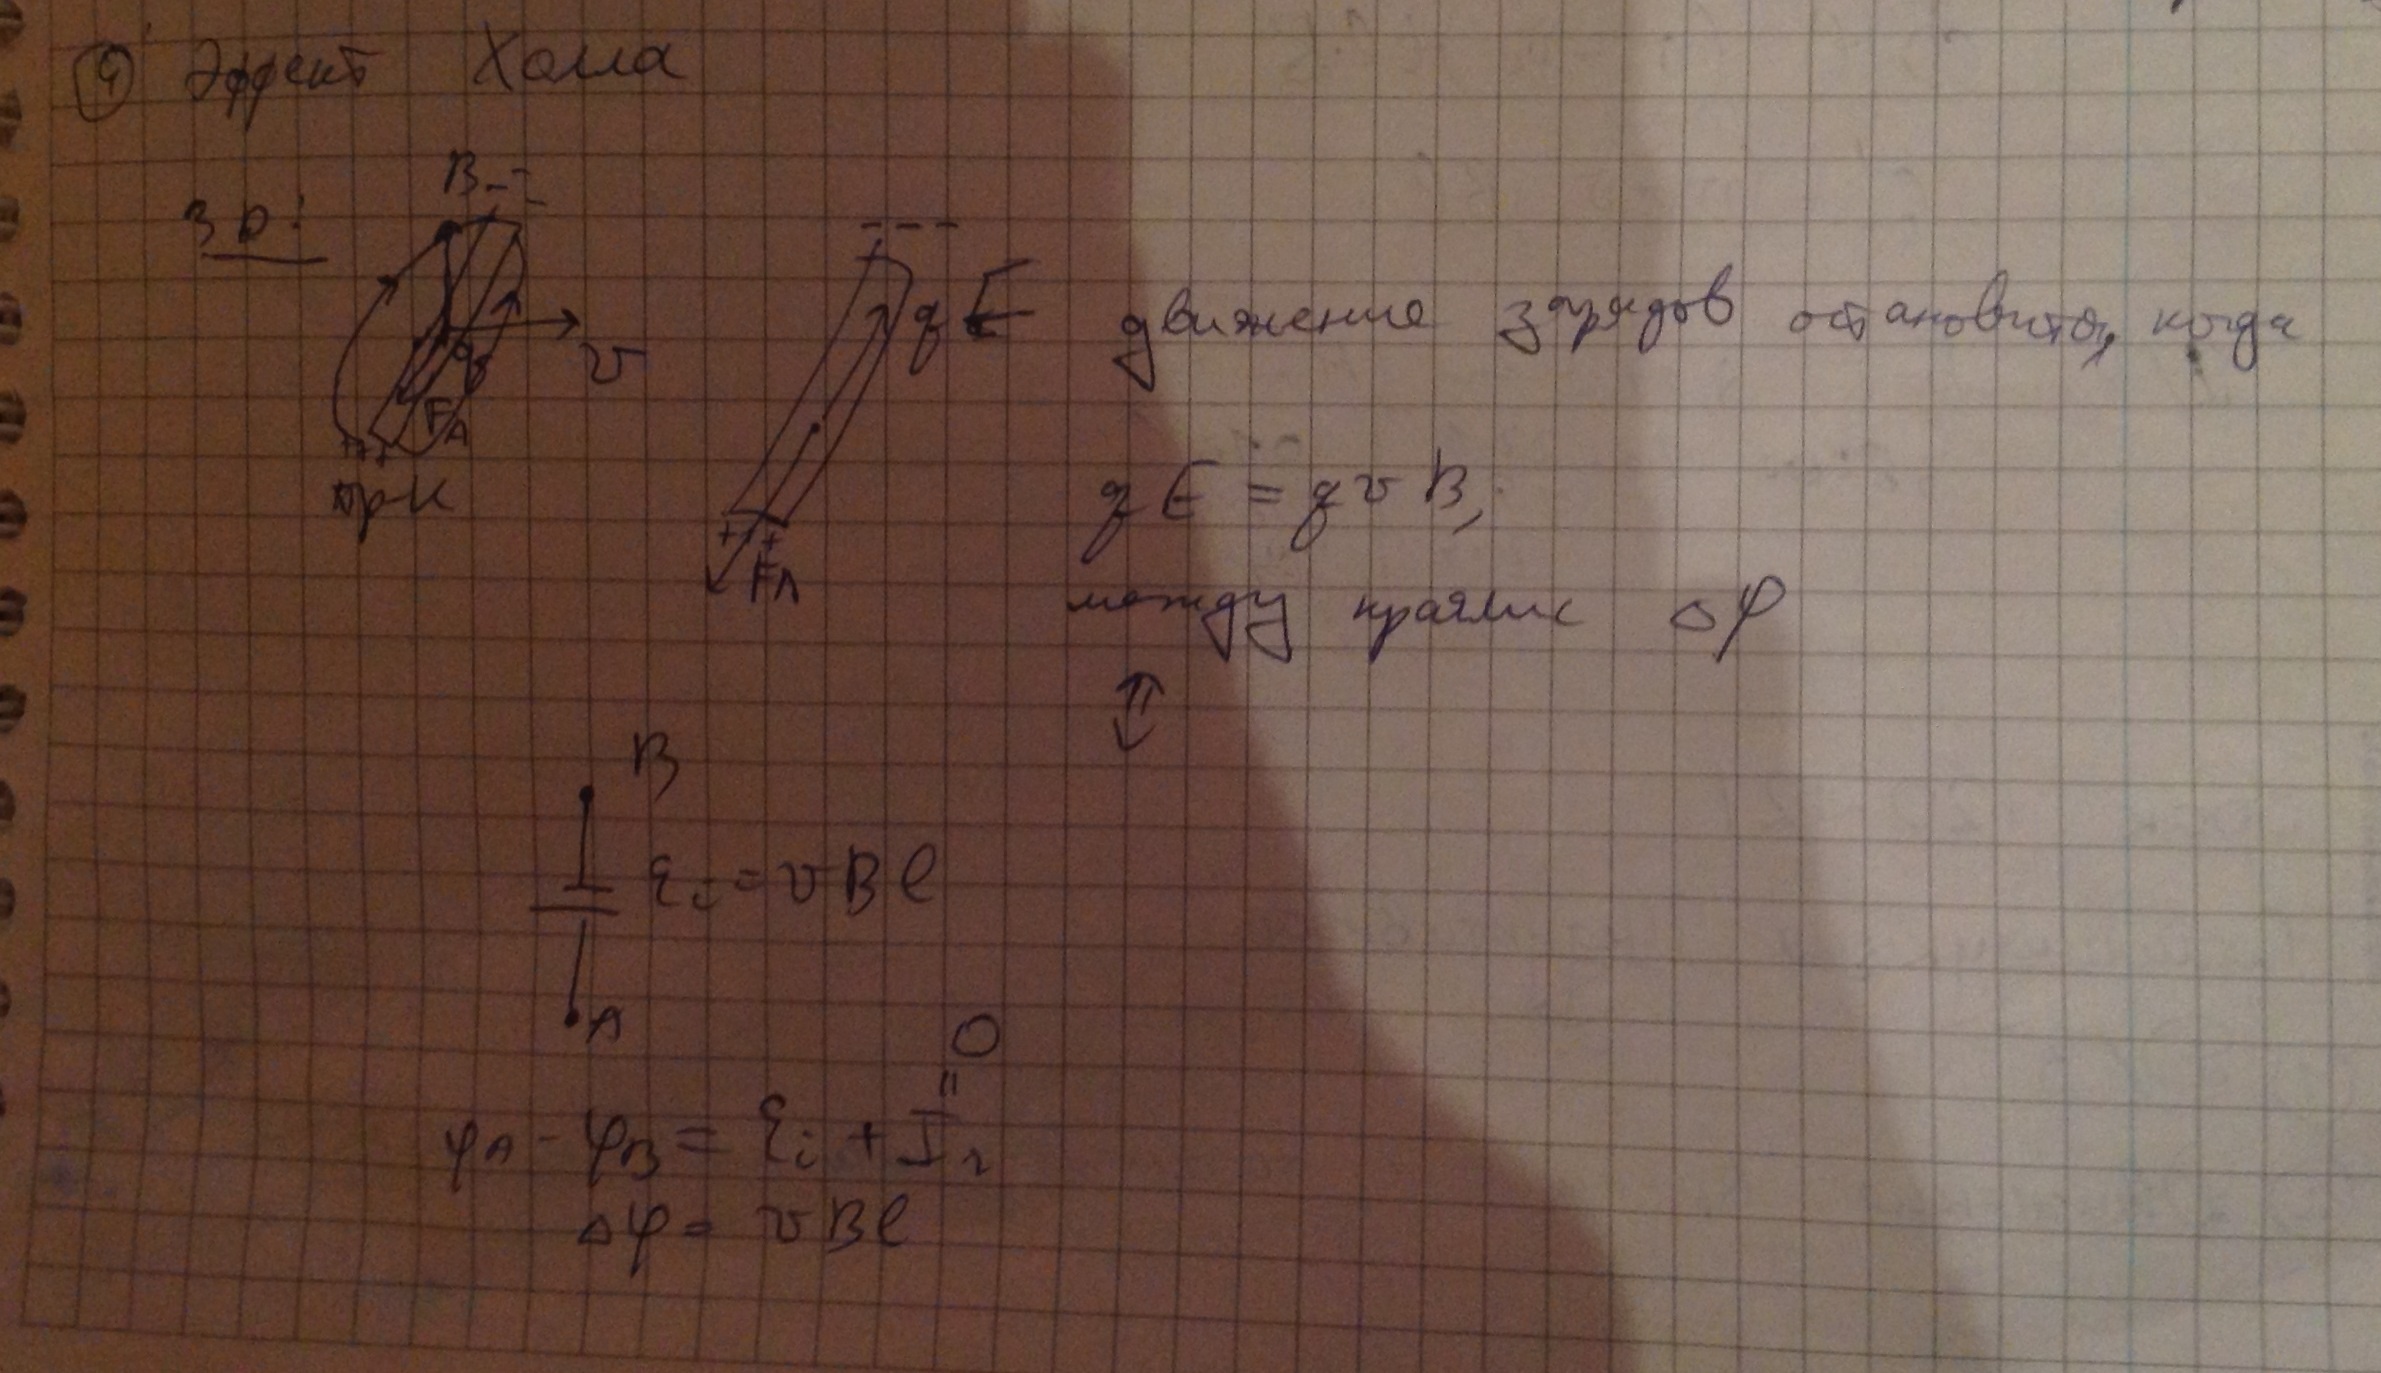 ④ Эффект Холла
3D:
B - - -
v
q
FЛ
+ + +
пр-к
- - -
qE
+ + +
FЛ
движение зарядов остановится, когда
qE = qvB,
между краями Δφ
⇕
B
Ɛi = vBl
A
0
=
φA - φB = Ɛi + Ir
Δφ = vBl